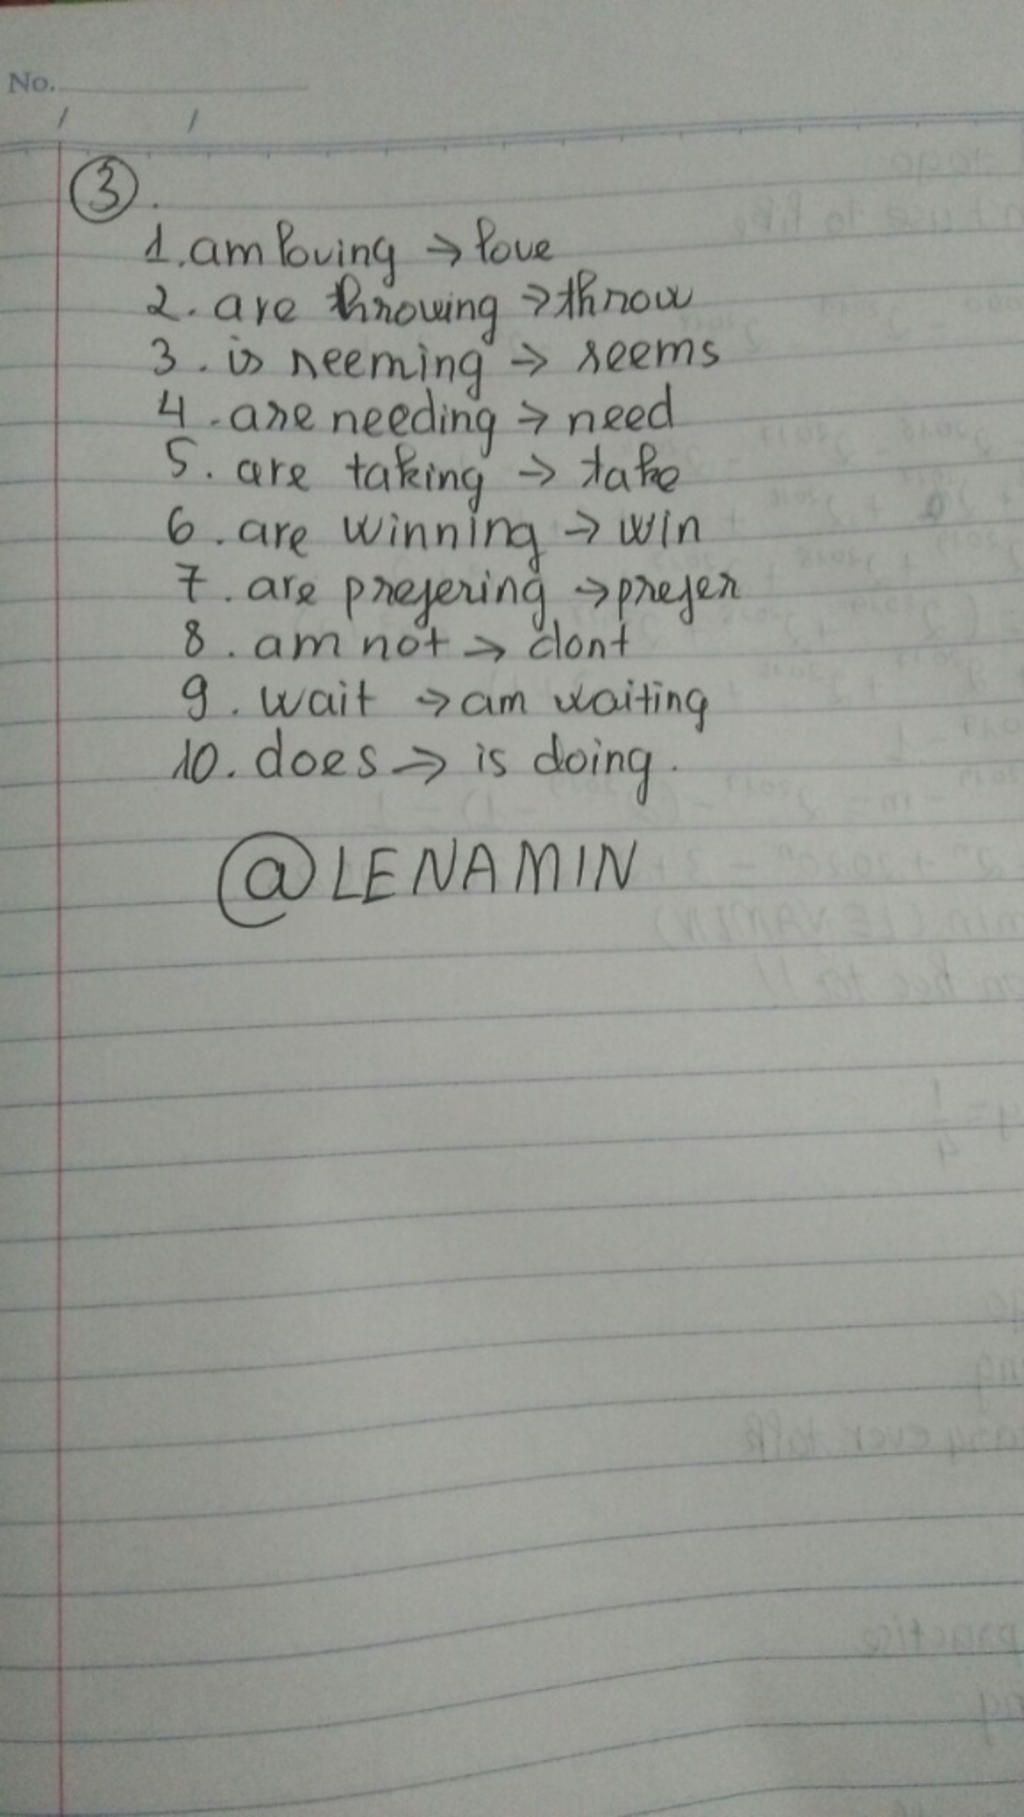 No.
/ /
3.
1. am loving → love
2. are throwing → throw
3. is seeming → seems
4. are needing → need
5. are taking → take
6. are winning → win
7. are prefering → prefer
8. am not → dont
9. wait → am waiting
10. does → is doing.
@LENAMIN